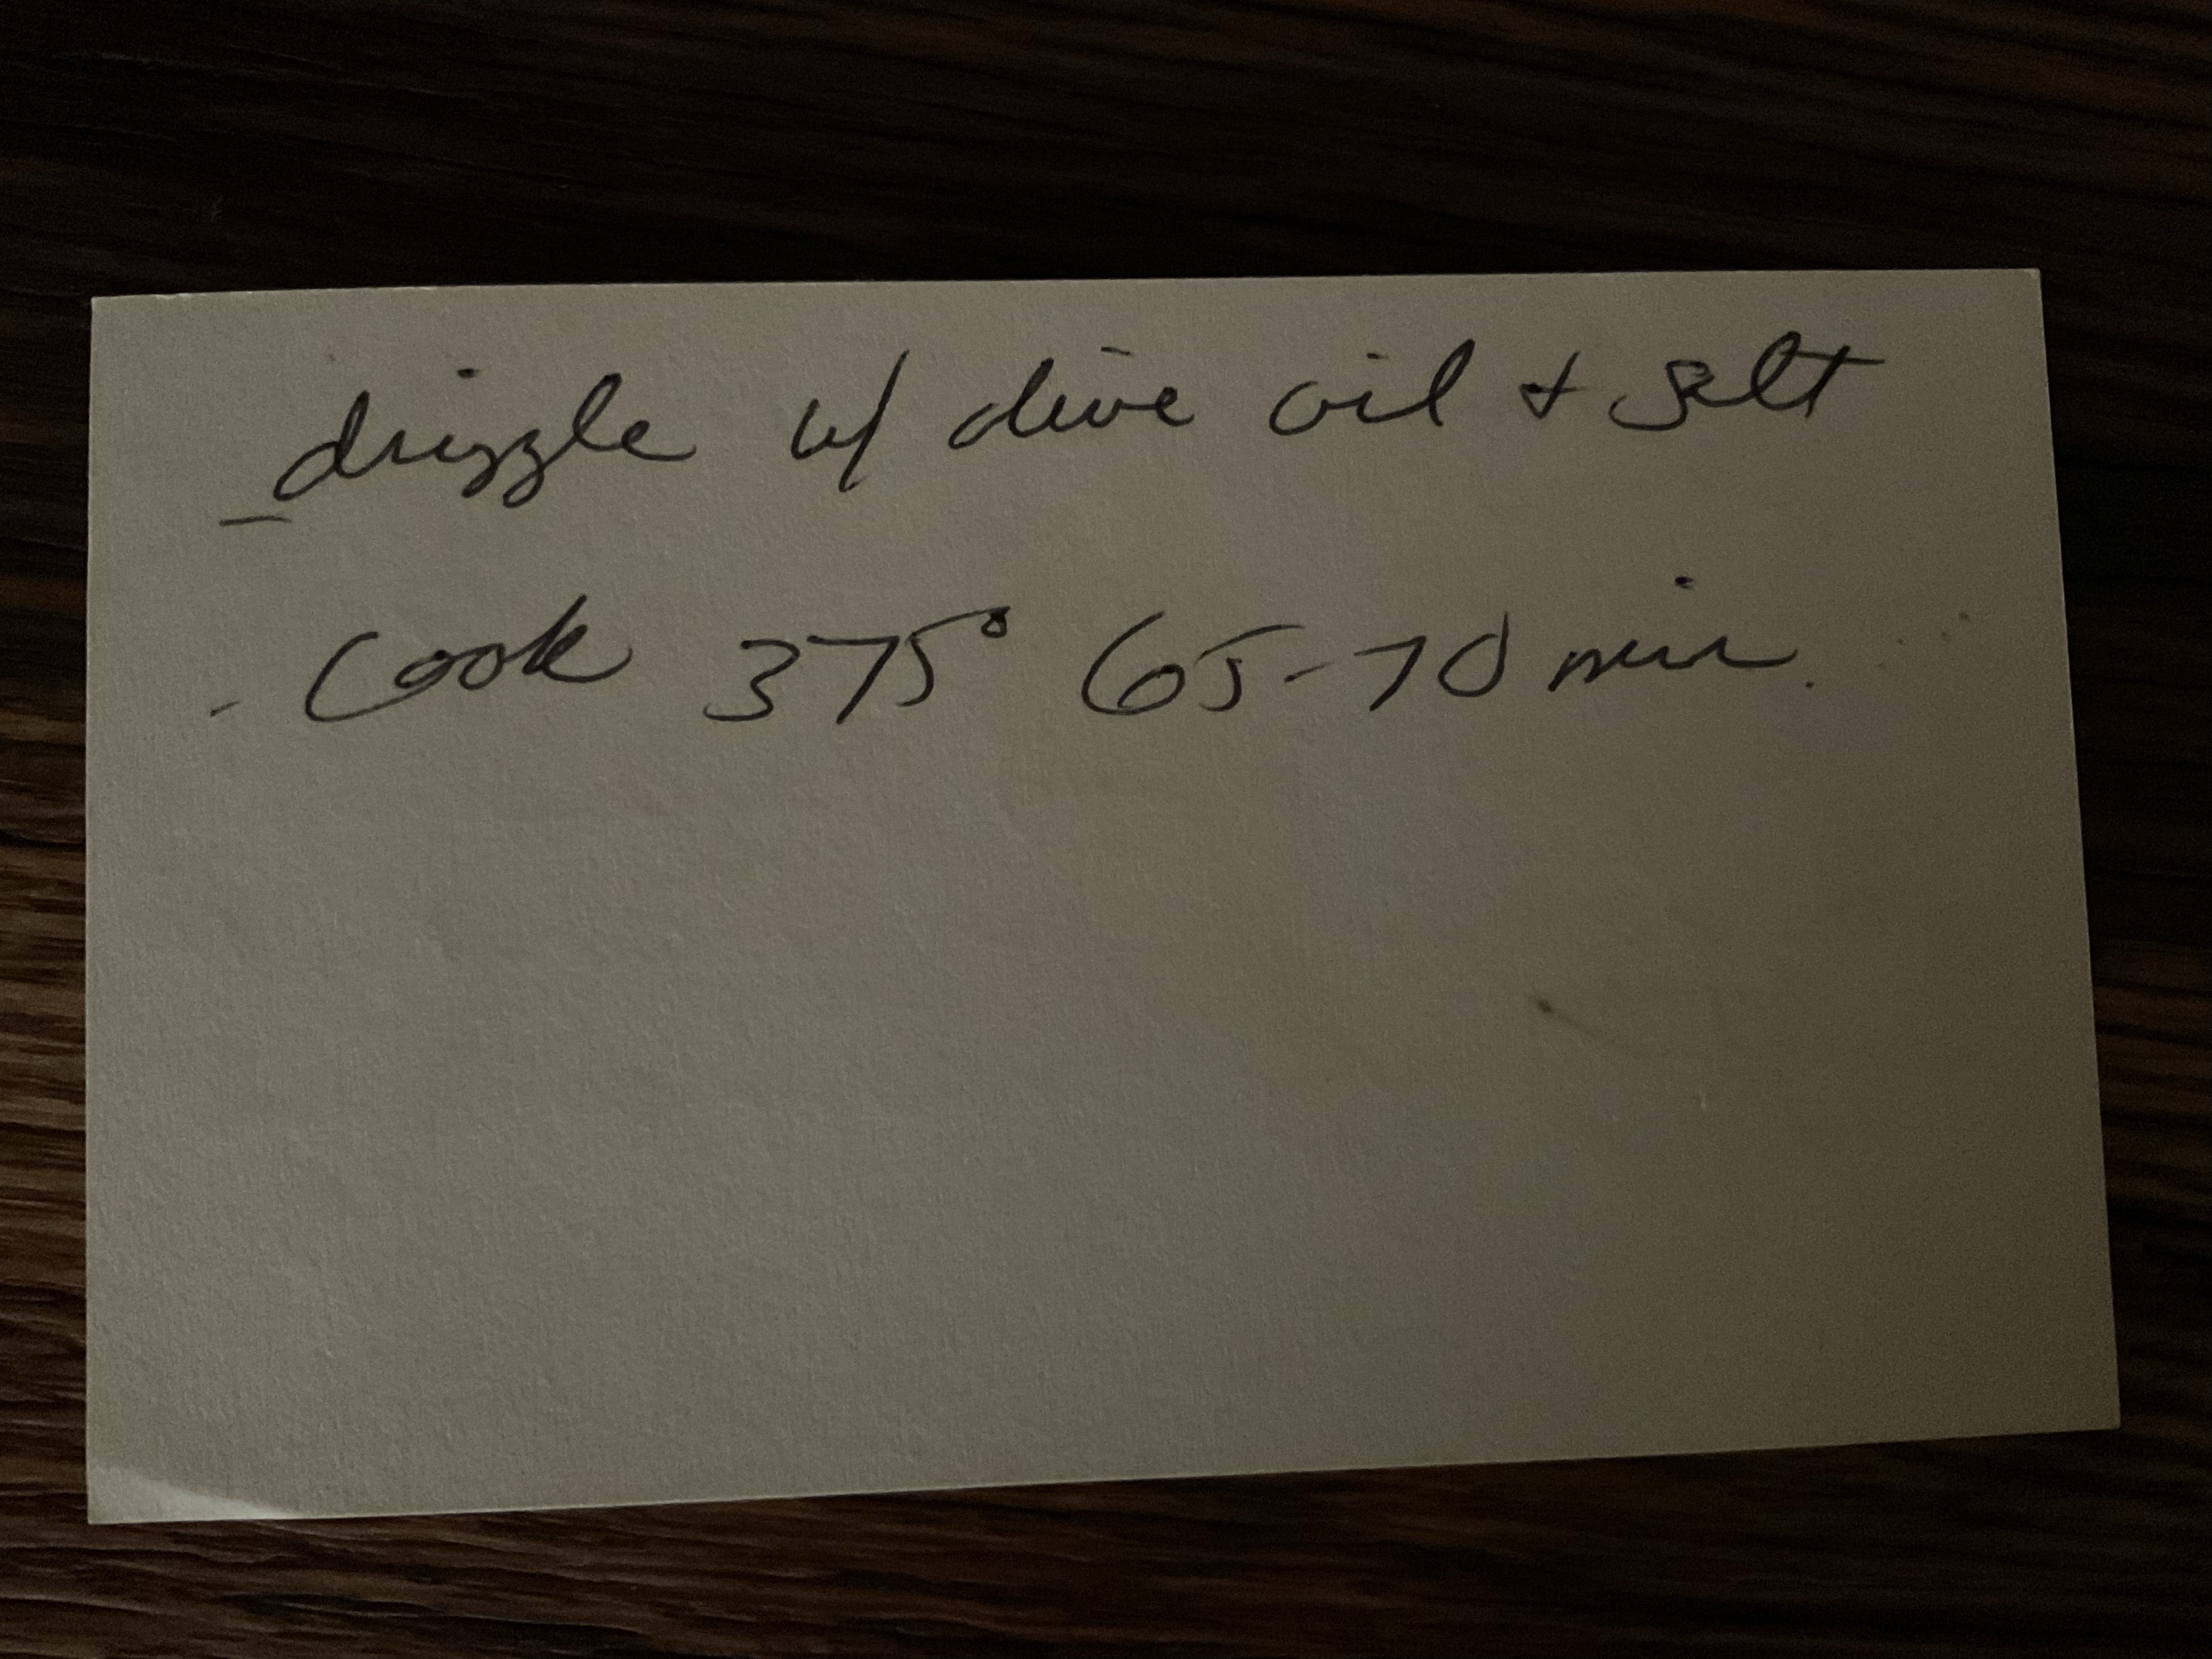 - drizzle w/ olive oil + salt
- Cook 375° 65-70 min.